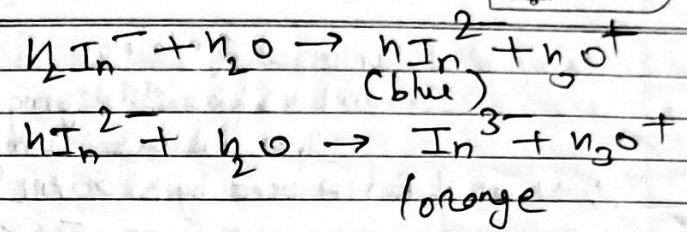 H₂In⁻ + H₂O → HIn²⁻ + H₃O⁺
(blue)
HIn²⁻ + H₂O → In³⁻ + H₃O⁺
(orange